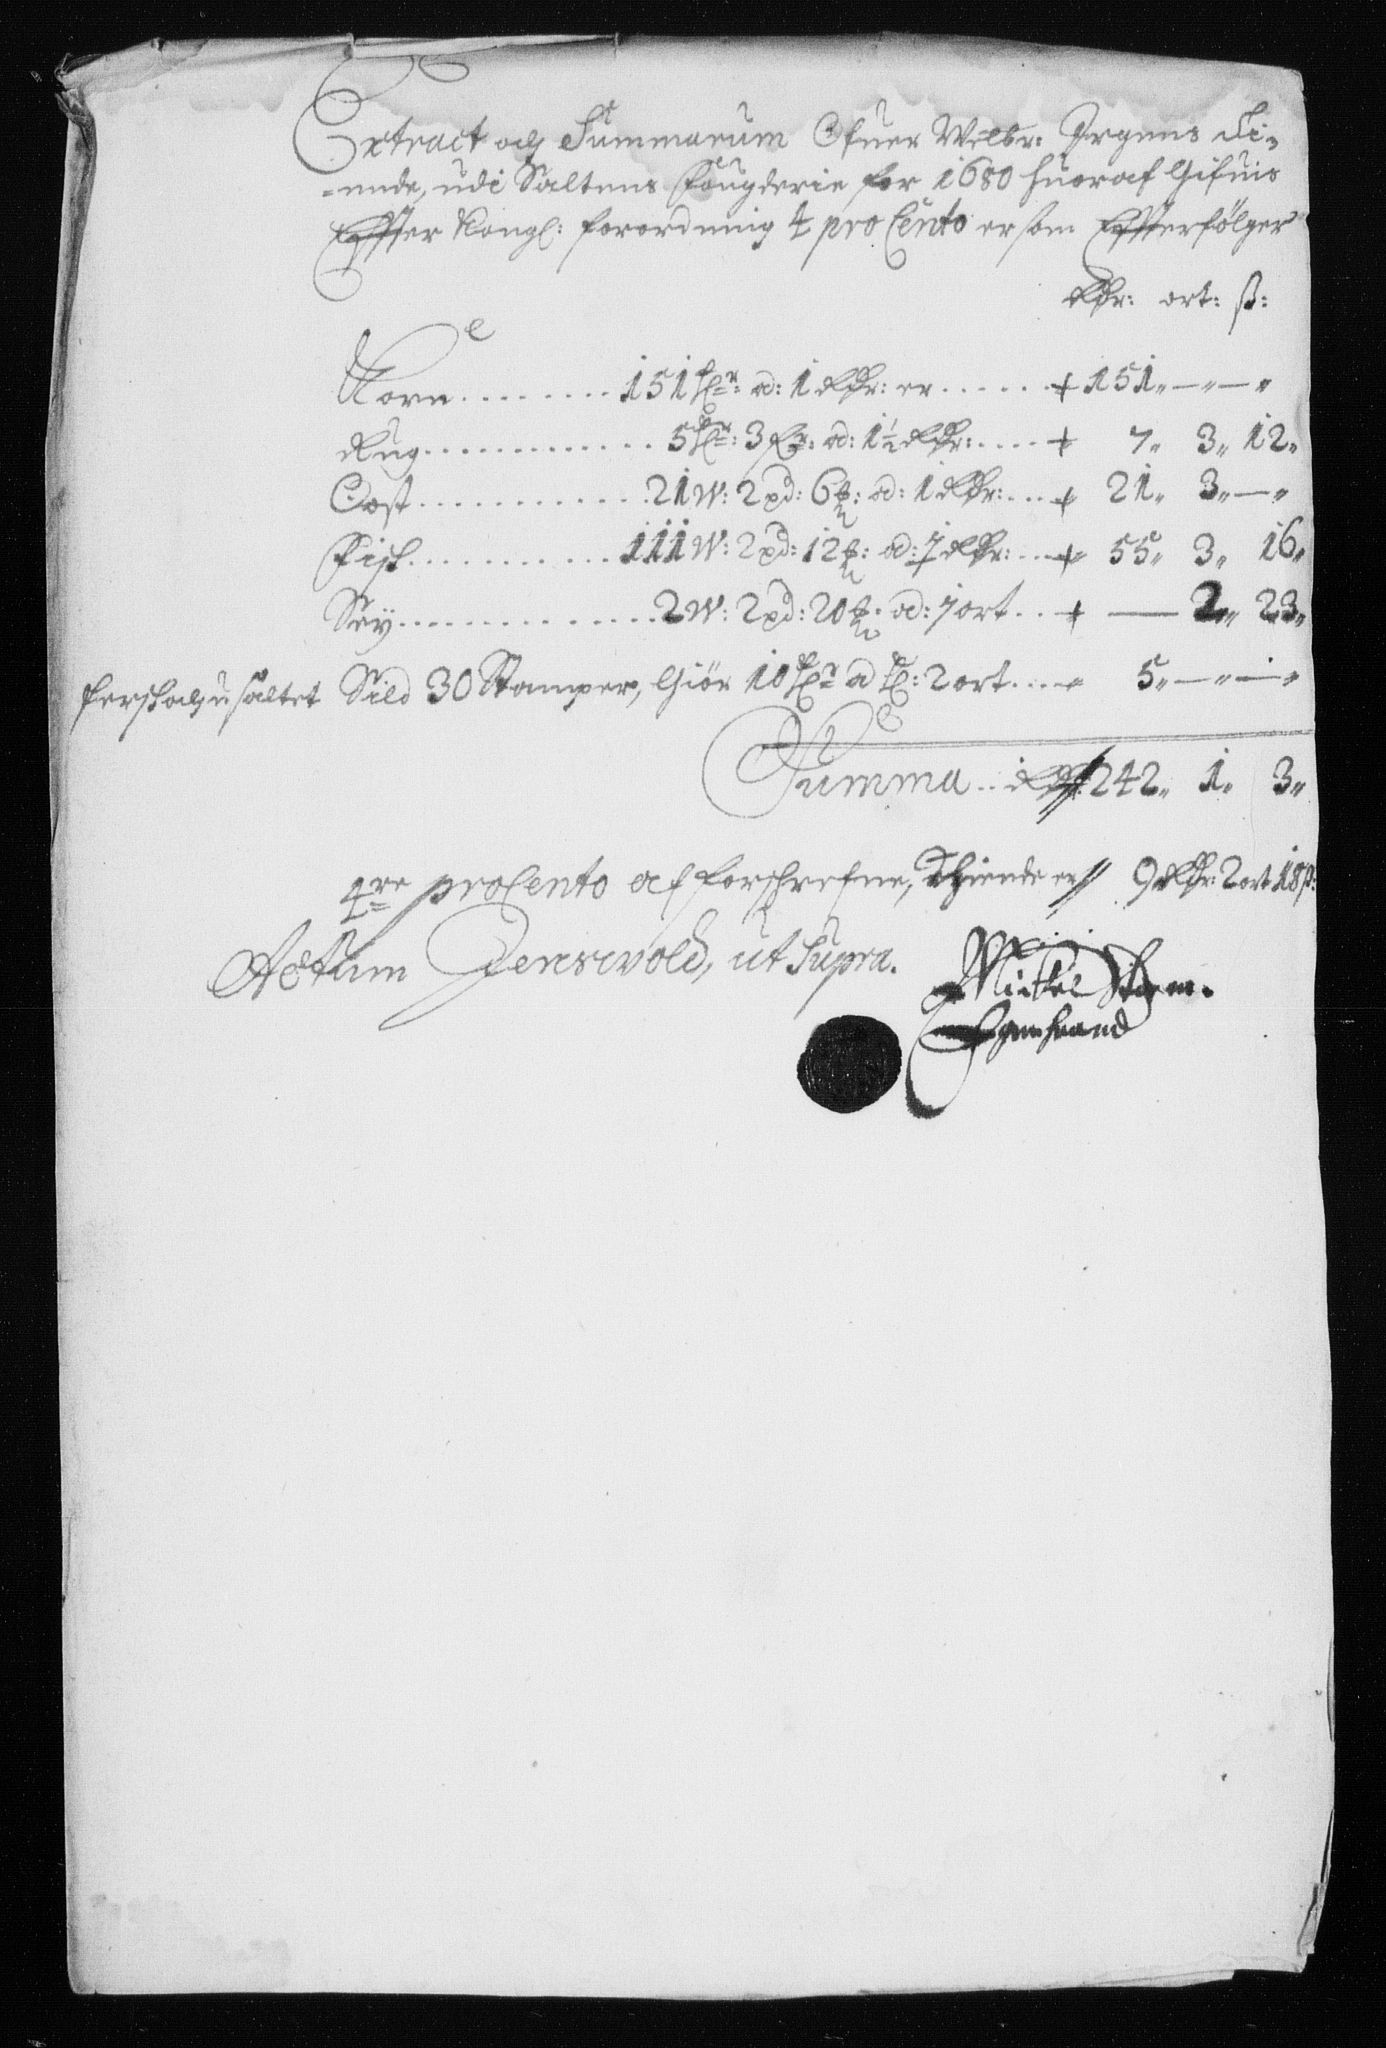 Extract och Summarum Ofuer Welbr: Irgens Ti-
-ende, udi Saltens Fougderie for 1680 huoraf Gifuis
Effter Kongl: forordning 4 pro Cento er som Effterfölger
Rdr: ort: ß:
Korn ......... 151 ad: 1 Rdr: er ...... 151 „ — „ — „
Rug ............ 5 3 ad: 1½ Rdr: .... 7 „ 3 „ 12 „
Oost ............ 21 W: 2 pd: 6 ad: 1 Rdr: ... 21 „ 3 „ — „
Fisk .......... 111 W: 2 pd: 12 ad: ½ Rdr: ... 55 „ 3 „ 16 „
Sey .............. 2 W: 2 pd: 20 ad: 1 ort ... — 2 „ 23 „
fersk och usaltet Sild 30 Stamper, Giör 10 a 2 ort .... 5 „ — „ — „
Summa .. Rdr 242 „ 1 „ 3 „
4re pro Cento af forschrefne, Thiende er // 9 Rdr: 2 ort 18 ß:
Actum Jenswold, ut Supra.
Mickel Storm.
Egenhaand